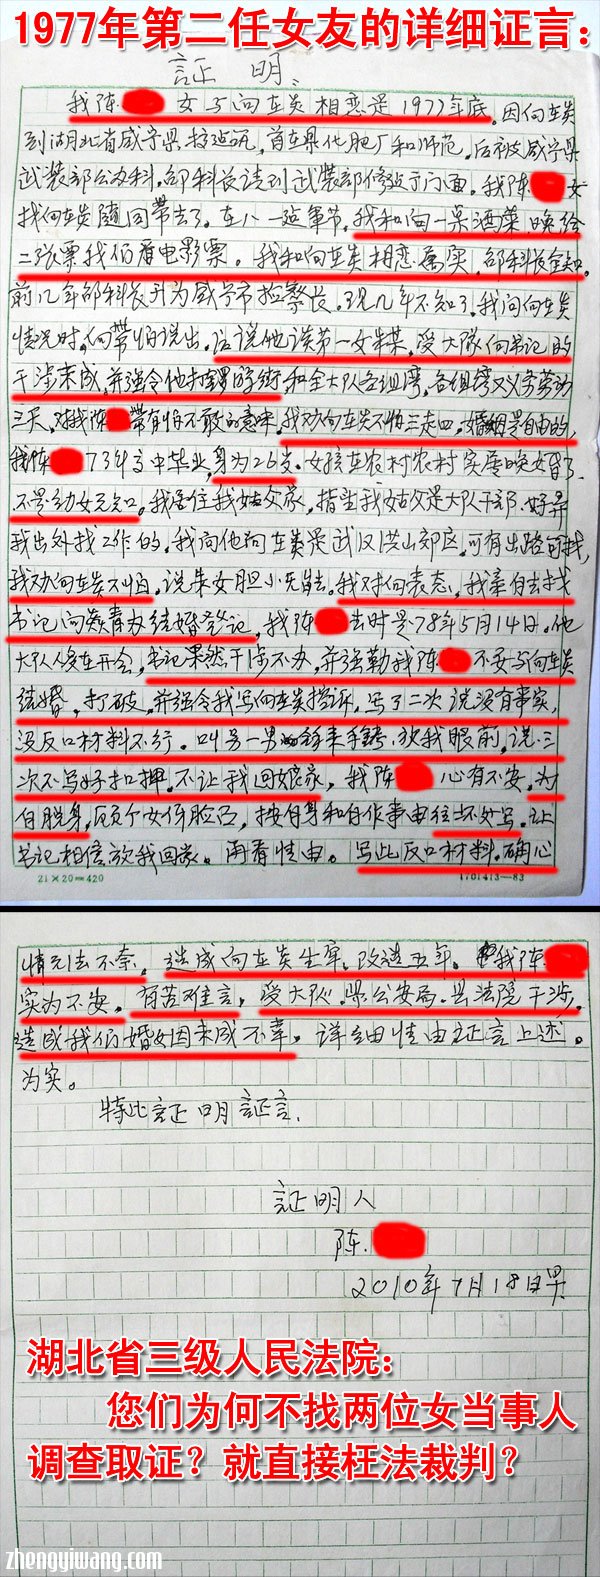 1977年第二任女友的详细证言：
証 明
我陈 女与向在炎相恋是1977年底。因向在炎
到湖北省咸宁县搞建筑，首在县化肥厂和师范。后被咸宁县
武装部公办科。部科长请到武装部修建门面。我陈 女
找向在炎随同带去了。在八一建军节。我和向一桌酒菜 晚给
二张票我们看电影票。我和向在炎相恋属实。部科长全知。
前几年部科长升为咸宁市检察长。现几年不知了。我问向在炎
情况时。向带怕说出。话说他谈第一女朱某。受大队向书记的
干涉未成。并强令他 和全大队各组湾。各组湾又义务劳动
三天。对我陈 带有怕不敢的意思。我劝向在炎不怕三走四。婚姻是自由的。
我陈 73年高中毕业。身为26岁。女孩在农村农村实属晚婚了
不是幼女无知。我居住我姑父家。指望我姑父是大队干部。好弄
我出外找工作的。我问他向在炎是武汉洪山郊区。可有出路可找，
我劝向在炎不怕。说朱女胆小无能。我对向表态，我亲自去找
书记向焱青办结婚登记，我陈 去时是78年5月14日。他
大队人员在开会，书记果然干涉不办，并强勒我陈 不要与向在炎
结婚，打破。并强令我写向在炎控诉，写了二次说没有事实，
没反口材料不行。叫另一男 拿来手铐 放我眼前，说三
次不写好扣押。不让我回娘家，我陈 心有不安，为
自脱身，顾个女仔脸凸，按自身和自作事由往坏处写。让
书记相信放我回家。再看情由。写此反口材料。确心
21×20＝420
1701413—83
情无法不奈。造成向在炎坐牢。改造五年。我陈
实为不安。有苦难言，受大队。县公安局。县法院干涉，
造成我们婚姻因未成不幸。详细情由证言上述。
为实。
特此証明証言.
証明人
陈.
2010年7月18日早
湖北省三级人民法院：
您们为何不找两位女当事人
调查取证？就直接枉法裁判？
zhengyiwang.com